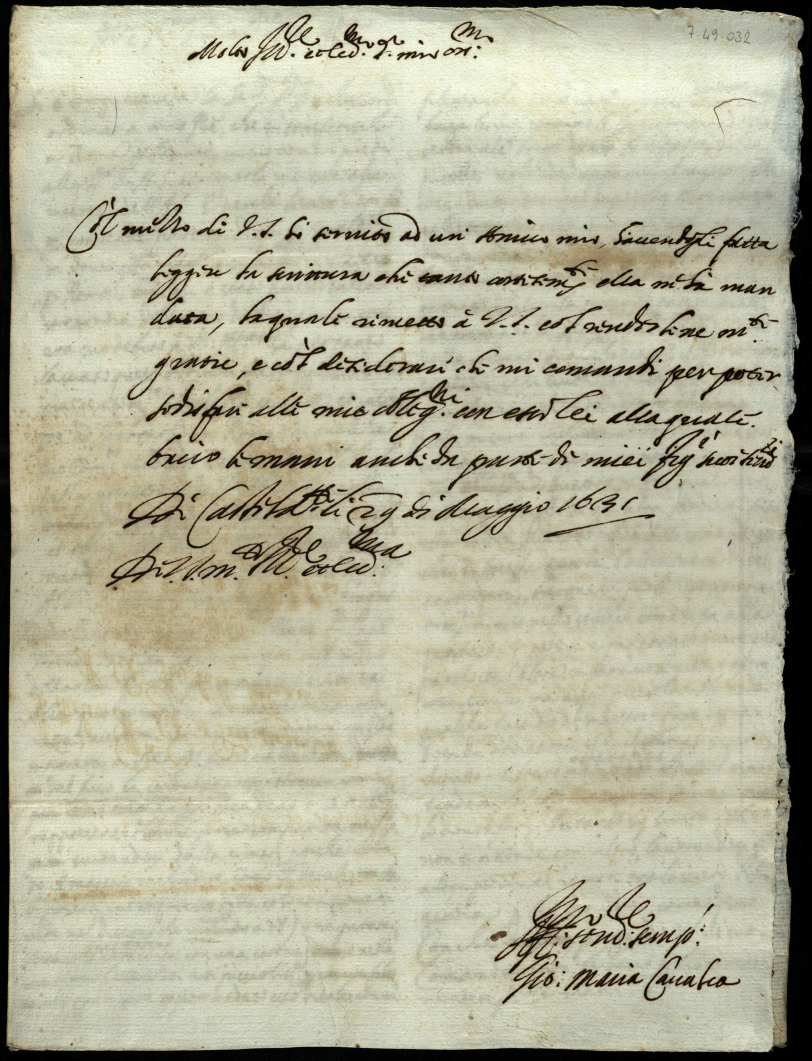 7-49-032
Molto Ill.re et ecc.mo s.r mio oss.mo
Col mezzo di V.S. ho servito ad un' Amico mio, havendogli fatta
leggere la scrittura che tanto cortesem.te ella mi hà man
data, la quale rimetto à V.S. col rendertene m.te
gratie, e col desiderare che mi comandi per poter
sodisfare alle mie oblig.ni con esso lei alla quale
bacio le mani anche da parte di miei fig.li
Di li 29 di Maggio 1631
Di V.S. m.to Ill.re et ecc.ma
Aff.mo ser.re semp.e
Gio: Maria